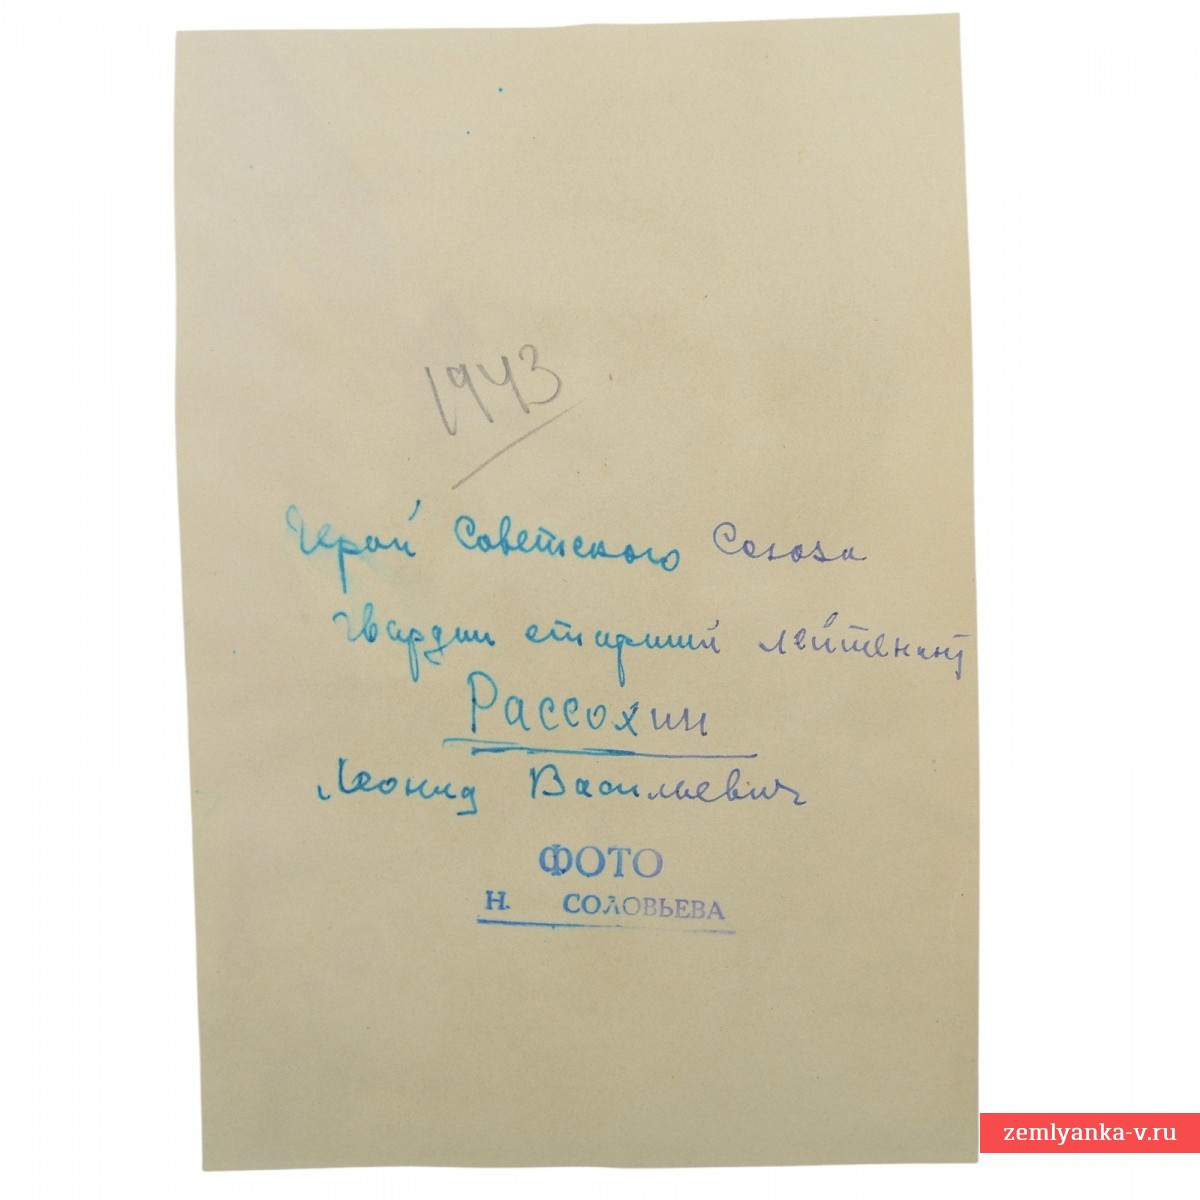 1943
Герой Советского Союза
Гвардии старший лейтенант
Рассохин
Леонид Васильевич
ФОТО
Н. СОЛОВЬЕВА
zemlyanka-v.ru